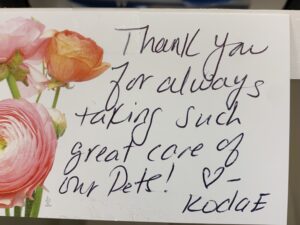 Thank you
for always
taking such
great care of
our Pets! ♡-
Koda E